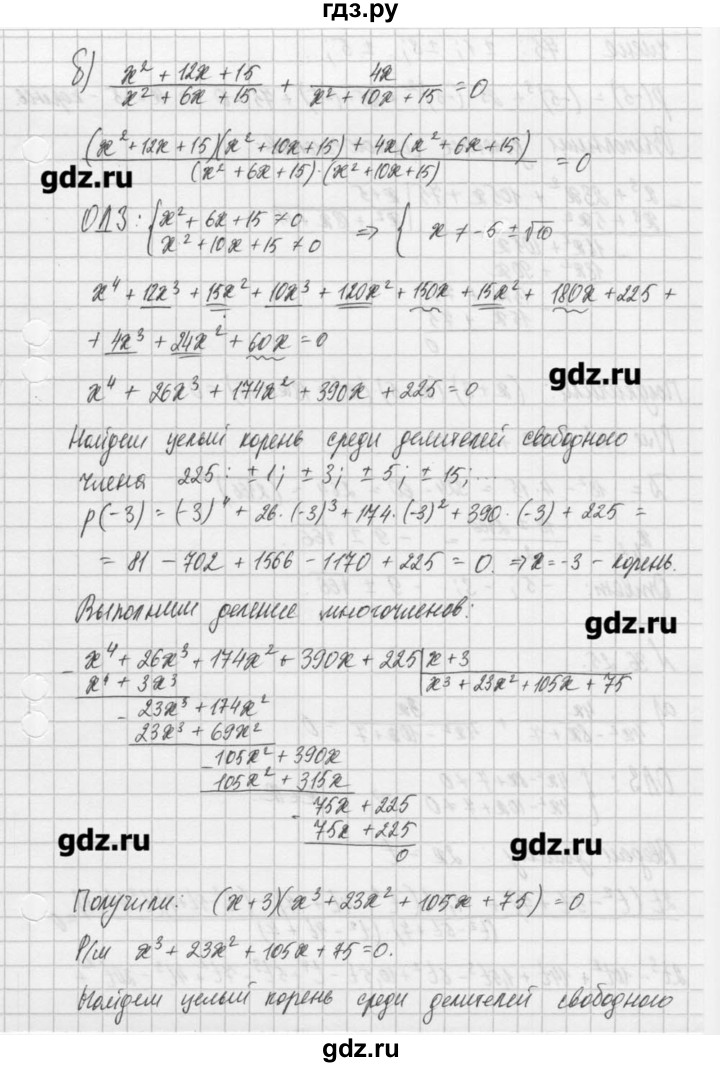 гдз.ру
б) (x² + 12x + 15)/(x² + 6x + 15) + 4x/(x² + 10x + 15) = 0
((x² + 12x + 15)(x² + 10x + 15) + 4x(x² + 6x + 15))/((x² + 6x + 15)·(x² + 10x + 15)) = 0
gdz.ru
ОДЗ: { x² + 6x + 15 ≠ 0
x² + 10x + 15 ≠ 0 => { x ≠ -5 ± √10
x⁴ + 12x³ + 15x² + 10x³ + 120x² + 150x + 15x² + 180x + 225 +
+ 4x³ + 24x² + 60x = 0
gdz.ru
x⁴ + 26x³ + 174x² + 390x + 225 = 0
Найдем целый корень среди делителей свободного
члена 225: ±1; ±3; ±5; ±15; ...
p(-3) = (-3)⁴ + 26·(-3)³ + 174·(-3)² + 390·(-3) + 225 =
= 81 - 702 + 1566 - 1170 + 225 = 0. => x = -3 - корень.
Выполним деление многочленов:
gdz.ru
- x⁴ + 26x³ + 174x² + 390x + 225 | x + 3
x⁴ + 3x³ | x³ + 23x² + 105x + 75
- 23x³ + 174x²
23x³ + 69x²
- 105x² + 390x
105x² + 315x
- 75x + 225
75x + 225
0
gdz.ru
gdz.ru
Получили: (x+3)(x³ + 23x² + 105x + 75) = 0
Р/м x³ + 23x² + 105x + 75 = 0.
Найдем целый корень среди делителей свободного
gdz.ru